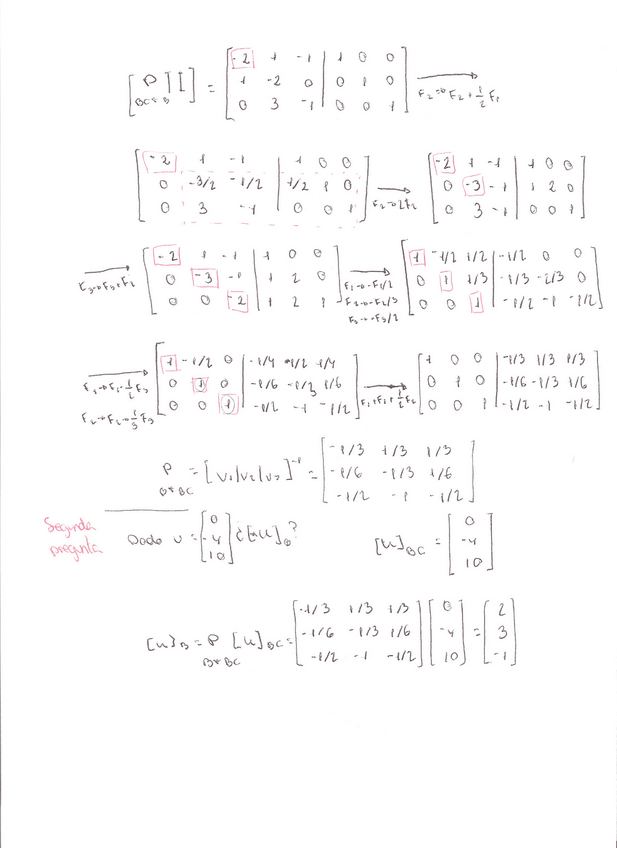 [P | I] = [-2 1 -1 | 1 0 0; 1 -2 0 | 0 1 0; 0 3 -1 | 0 0 1] F2→F2+1/2F1
BC←B
[-2 1 -1 | 1 0 0; 0 -3/2 -1/2 | 1/2 1 0; 0 3 -1 | 0 0 1] F2→2F2 [-2 1 -1 | 1 0 0; 0 -3 -1 | 1 2 0; 0 3 -1 | 0 0 1]
F3→F3+F2 [-2 1 -1 | 1 0 0; 0 -3 -1 | 1 2 0; 0 0 -2 | 1 2 1] F1→-F1/2 F2→-F2/3 F3→-F3/2 [1 -1/2 1/2 | -1/2 0 0; 0 1 1/3 | -1/3 -2/3 0; 0 0 1 | -1/2 -1 -1/2]
F1→F1-1/2F3 F2→F2-1/3F3 [1 -1/2 0 | -1/4 1/2 1/4; 0 1 0 | -1/6 -1/3 1/6; 0 0 1 | -1/2 -1 -1/2] F1→F1+1/2F2 [1 0 0 | -1/3 1/3 1/3; 0 1 0 | -1/6 -1/3 1/6; 0 0 1 | -1/2 -1 -1/2]
P = [v1|v2|v3]^-1 = [-1/3 1/3 1/3; -1/6 -1/3 1/6; -1/2 -1 -1/2]
B←BC
Segunda pregunta
Dado u = [0; -4; 10] ¿[u]B? [u]BC = [0; -4; 10]
[u]B = P [u]BC = [-1/3 1/3 1/3; -1/6 -1/3 1/6; -1/2 -1 -1/2] [0; -4; 10] = [2; 3; -1]
B←BC